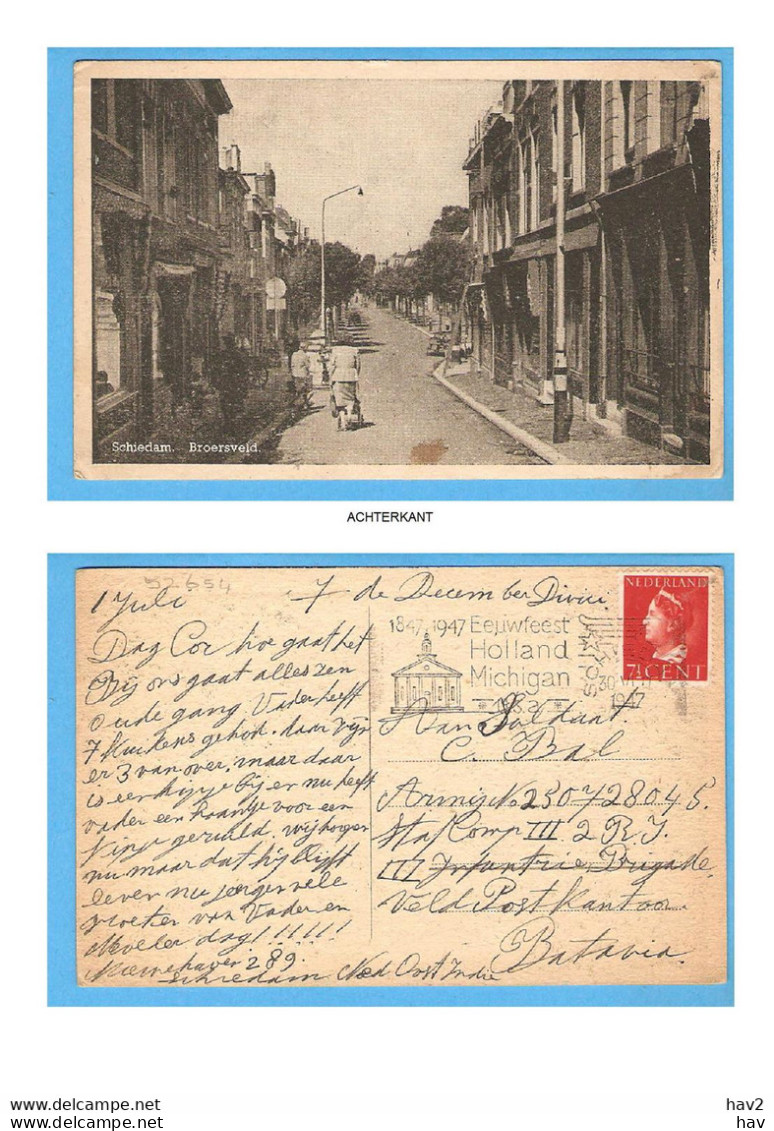 Schiedam. Broersveld.
ACHTERKANT
52654
1 Juli 7 de December Divici
NEDERLAND
7½ CENT
1847.1947 Eeuwfeest
Holland
Michigan
U.S.A.
1947
Dag Cor hoe gaat het
Bij ons gaat alles zen
oude gang. Vader heeft
7 Kuikens gehod. daar zijn
er 3 van over. maar daar
is een kipje bij en nu heeft
vader een haantje voor een
kipje geruild. wij hopen
nu maar dat hij blijft
leven nu jongen vele
groeten van Vader en
Moeder dag!!!!!!
Nieuwehaven 289.
Schiedam
Aan Soldaat
C. Bal
Armij No 250728045.
Staf Comp III 2 R.J.
III Infantrie Brigade.
Veld Post Kantoor
Batavia.
Ned Oost Indie
hav2
hav